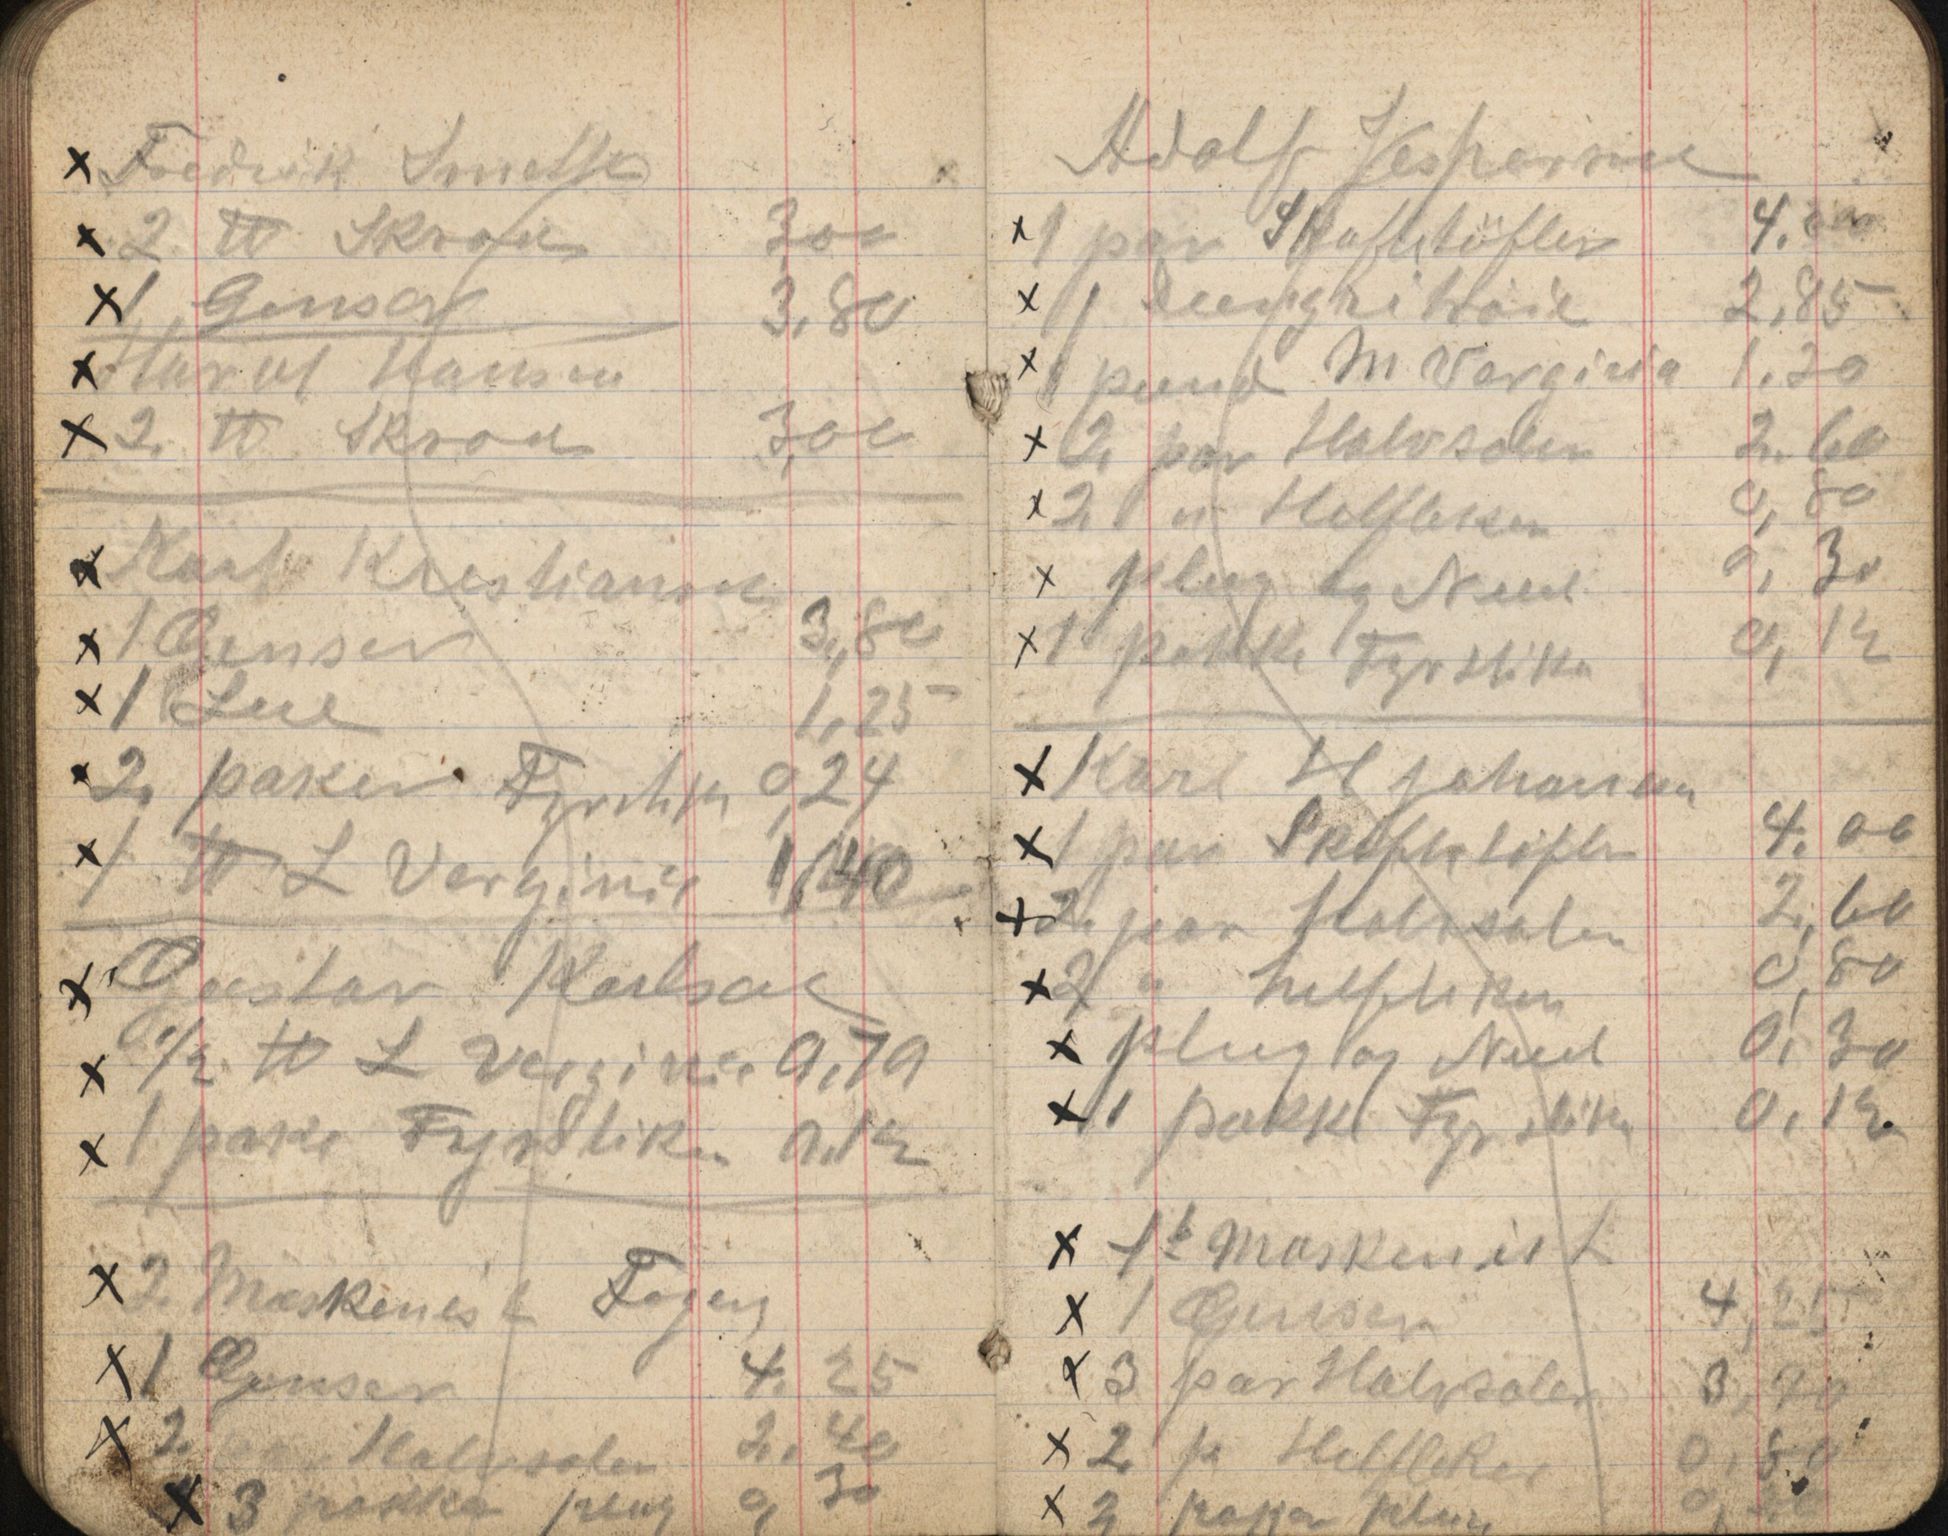 x Fredrik Smith
x 2 ℔ Skroa 3,00
x 1 Genser 3,80
x Harol Hansen
x 2. ℔ Skroa 3,00
x Karl Kristiansen
x 1 Genser 3,80
x 1 Lue 1,25
x 2. paker Fyrstika 0,24
x 1 ℔ L Verginie 1,40
x Gustav Karlsen
x 1/2 ℔ L Verginie 0,70
x 1 pake Fyrstika 0,12
x 2. Maskenist
x 1 Genser 4,25
x 2. par Halvsoler 2,40
x 3 pakka plug 0,30
Adolf Jespersen
x 1 par Skaftetöfler 4,00
x 1 2,85
x 1 pund M Verginia 1,30
x 2. par Halvsoler 2,60
x 2 " Helflikker 0,80
x plug og Neel 0,30
x 1 pakke Fyrstika 0,12
x Karl H johansen
x 1 par Skaftetöfler 4,00
x 2. par Halvsoler 2,60
x 2 " helflikker 0,80
x plug og Neel 0,30
x 1 pakke Fyrstika 0,12
x 1ste Maskenist
x 1 Genser 4,25
x 3 par Halvsoler 3,70
x 2 p Helfleker 0,80
x 2 pakka plug